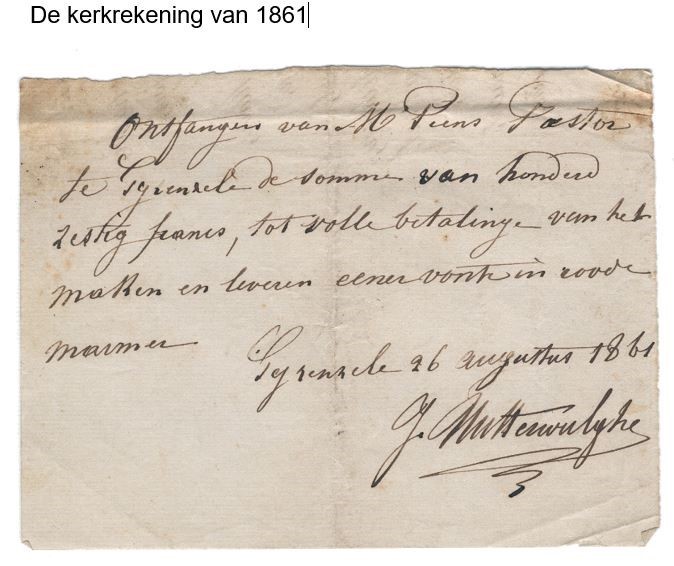 De kerkrekening van 1861
Ontfangen van Mr Piens Pastor
te Gysenzele de somme van honderd
zestig francs, tot volle betalinge van het
maken en leveren eener vonte in roode
marmer
Gysenzele 26 augustus 1861
J.